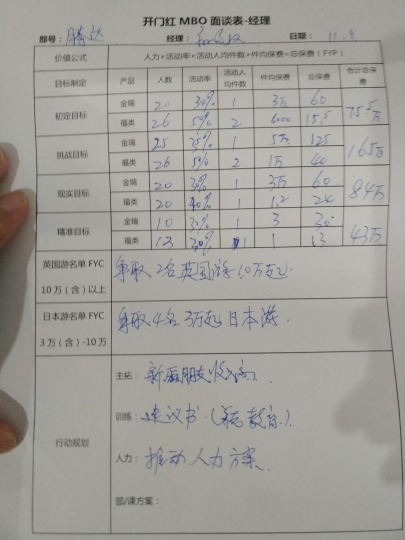 开门红 MBO 面谈表-经理
部号：腾达 经理： 日期：11.9
价值公式 人力×活动率×活动人均件数×件均保费=总保费（FYP）
目标制定 产品 人数 活动率 活动人均件数 件均保费 总保费 合计总保费
初定目标 金瑞 20 30% 1 3万 60 75.5万
福类 26 50% 2 6000 15.5
挑战目标 金瑞 25 1 5万 125 165万
福类 26 2 1万 40
现实目标 金瑞 20 1 3万 60 84万
福类 20 1 1.2 24
精准目标 金瑞 10 30% 1 3 30 43万
福类 13 1 1 13
英国游名单 FYC 10 万（含）以上 争取2名英国游10万起
日本游名单 FYC 3 万（含）-10万 争取4名3万起日本游.
行动规划
主拓：
训练：建议书（ 教育）.
人力：推动人力方案.
部/课方案：